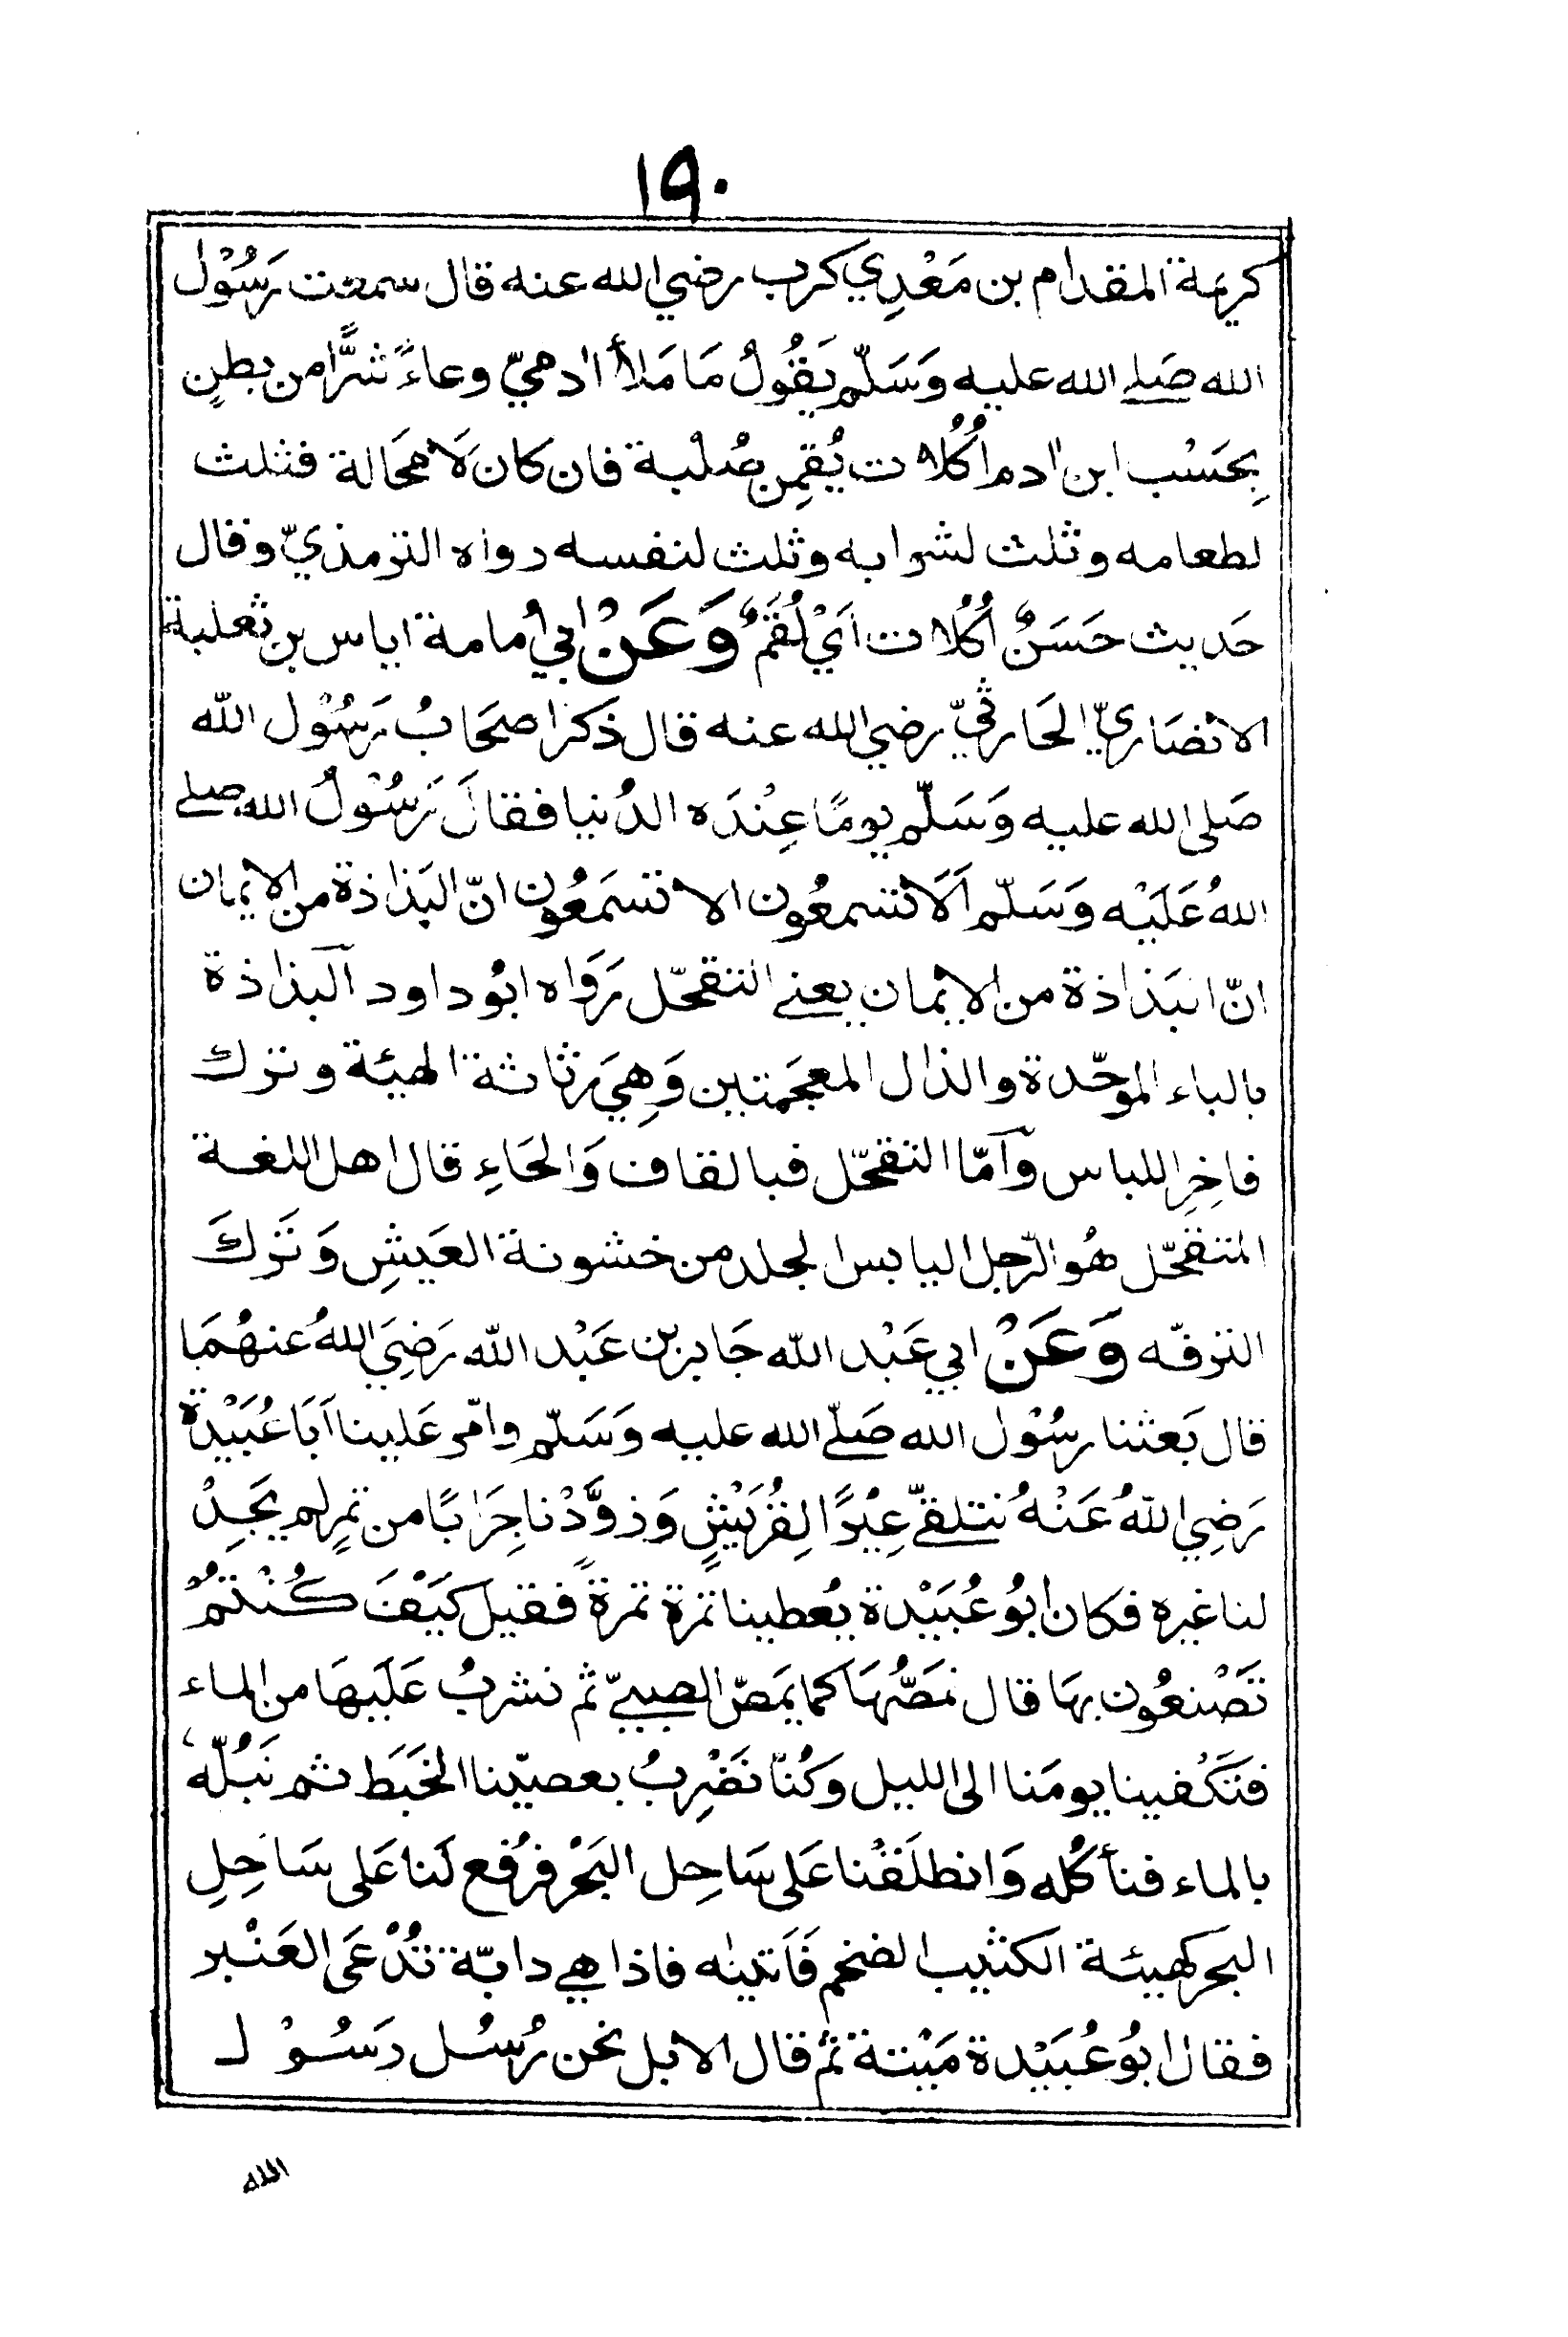 ١٩٠
كريمة المقدام بن مَعْدِي كرب رضي الله عنه قال سمعت رَسُوْل
الله صَلى الله عليه وَسَلّم يَقُولُ مَا مَلأ اٰدميّ وعاءً شرًّا من بطنٍ
بِحَسْب ابن اٰدم اُكُلات يُقِمن صُلْبة فان كان لَا مَحَالة فثلث
لطعامه وثلث لشرابه وثلث لنفسه رواه الترمذيّ وقال
حَديث حَسَنٌ اُكُلات اَيْ لُقَمٌ وَعَنْ ابي اُمامة اياس بن ثعلبة
الانصَاريّ الحَارثيّ رضي الله عنه قال ذَكَرَ اصحَابُ رَسُوْل اللّه
صَلى الله عليه وَسَلّم يومًا عِنْدَه الدُنيا فقالَ رَسُوْلُ الله صلى
اللهُ عَلَيْه وَسَلّم اَلَا تسْمعُون الا تسمَعُون انّ البَذاذة من الايمان
انّ البَذاذة من الايمان يعنى التقحّل رَوَاه ابُو داود اَلبذاذة
بالباء الموحّدة والذال المعجَمتين وَهِيَ رَثاثة الهيئة وترك
فاخِرِ اللباس وَاَمّا التقحّل فبالقاف وَالحَاءِ قال اهل اللغة
المتقحّل هُو الرّجل اليابس الجلد من خشونة العَيشِ وَتَركَ
الترفّه وَعَنْ ابي عَبْد اللّه جَابر بن عَبْد اللّه رَضِيَ اللهُ عنهُمَا
قال بَعثنا رسُوْل الله صَلّى الله عليه وَسَلّم وامّر عَلينا اَبَا عُبَيْدة
رَضِيَ اللّهُ عَنْهُ نتلقّى عِيْرًا لِقُرَيْشٍ وَزوَّدْنا جِرَابًا من تمرٍ لم يَجِدْ
لنا غيره فكان ابُو عُبَيْدة يُعطينا تمرة تمرةً فقيل كَيْفَ كُنْتمُ
تَصْنعُون بها قال نمَصُّهَا كما يمَصّ الصبيّ ثم نشربُ عَلَيهَا من الماء
فتَكْفينا يومَنا الى الليل وكُنّا نَضْرِبُ بعصيّنا الخَبَط ثم نَبُلّه
بالماء فنأكُله وَانطلَقْنا عَلى سَاحِل البَحْر فرُفع لَنا عَلى سَاحِلِ
البحر كهيئة الكثيب الضخم فَاَتيناه فاذا هي دابّة تُدْعَى العَنْبر
فقال ابُو عُبَيْدة مَيْتة ثم قال لا بل نحن رُسُل رَسُوْل
الله